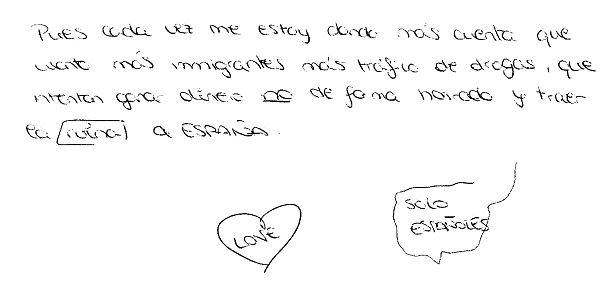 Pues cada vez me estoy dando más cuenta que
cuanto más inmigrantes más tráfico de drogas, que
intentan ganar dinero de forma honrada y traer
la ruina a ESPAÑA.
LOVE
SOLO
ESPAÑOLES